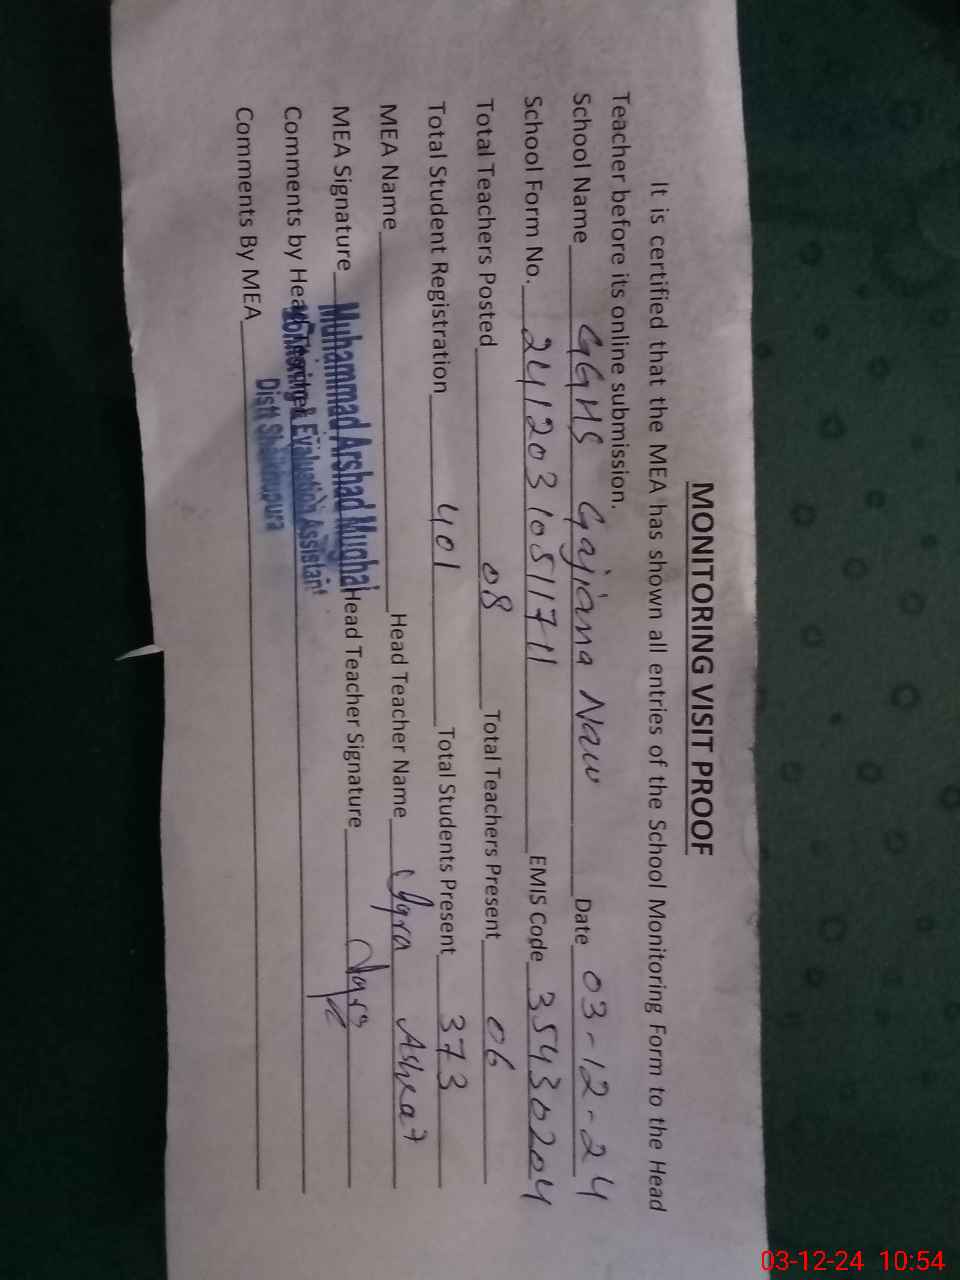 MONITORING VISIT PROOF
It is certified that the MEA has shown all entries of the School Monitoring Form to the Head
Teacher before its online submission.
School Name GGHS Gajiana Naw Date 03-12-24
School Form No. 24120310511711 EMIS Code 35430204
Total Teachers Posted 08 Total Teachers Present 06
Total Student Registration 401 Total Students Present 373
MEA Name Head Teacher Name Iqra Ashraf
MEA Signature Muhammad Arshad Mughal Head Teacher Signature Iqra
Comments by Head Teacher
Monitoring & Evaluation Assistant
Distt Sheikhupura
Comments By MEA
03-12-24 10:54